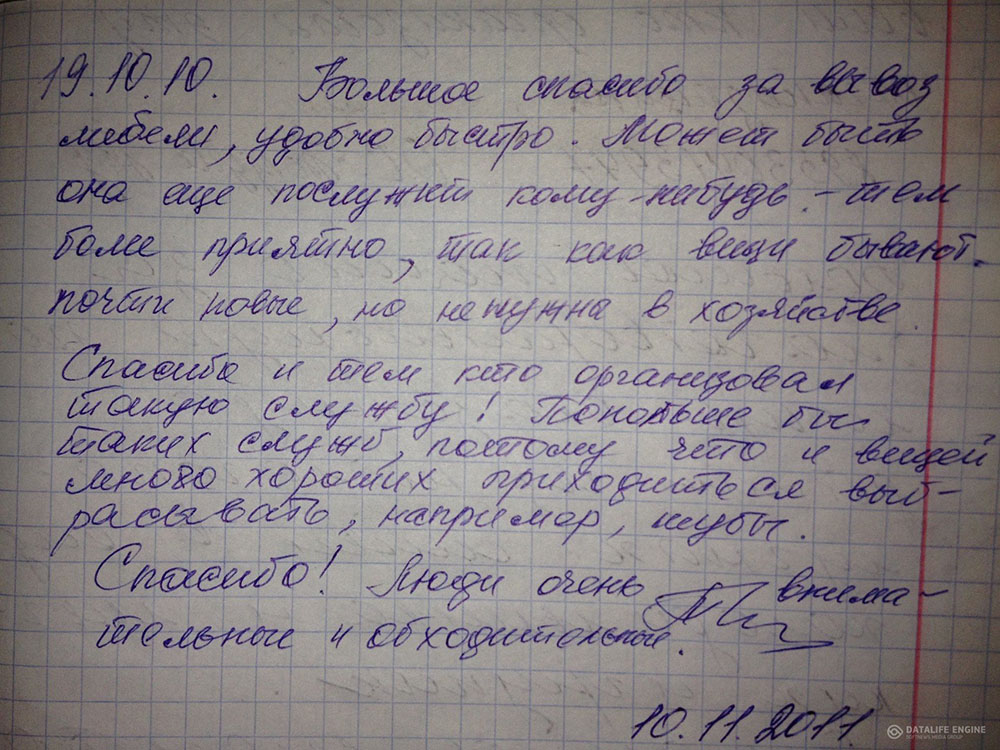 19.10.10. Большое спасибо за вывоз
мебели, удобно быстро. Может быть
она еще послужит кому-нибудь - тем
более приятно, так как вещи бывают
почти новые, но ненужна в хозяйстве.
Спасибо и тем кто организовал
такую службу! Попольше бы
таких служб, потому что и вещей
много хороших приходиться выб-
расывать, например, шубы.
Спасибо! Люди очень внима-
тельные и обходительные.
10.11.2011
DATALIFE ENGINE
SOFTNEWS MEDIA GROUP